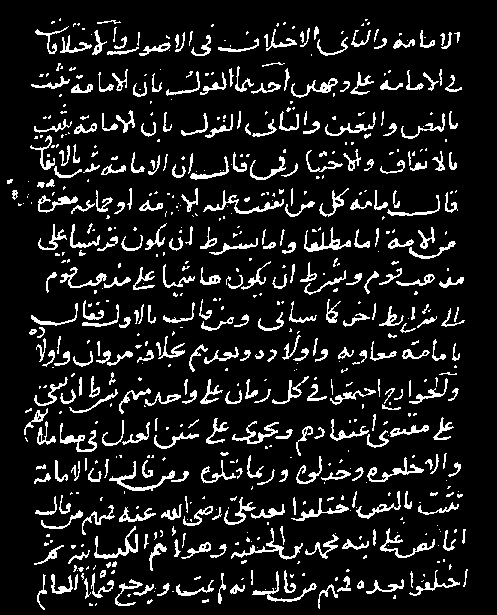 الامامة والثانى الاختلاف فى الاصول والاختلاف
فى الامامة على وجهين احدهما القول بان الامامة تثبت
بالنص والتعيين والثانى القول بان الامامة تثبت
بالاتفاق والاختيار فمن قال ان الامامة تثبت بالاتفاق
قال بامامة كل من اتفقت عليه الامة او جماعة معتبرة
من الامة اما مطلقا واما بشرط ان يكون قرشيا على
مذهب قوم وبشرط ان يكون هاشميا على مذهب قوم
الى شرايط اخر كما سياتى ومن قال بالاول فقال
بامامة معاوية واولاده وبعدهم بخلافة مروان واولاده
والخوارج اجتمعوا فى كل زمان على واحد منهم بشرط ان يبقى
على مقتضى اعتقادهم ويجرى على سنن العدل فى معاملاتهم
والا خلعوه وخذلوه وربما قتلوه ومن قال ان الامامة
تثبت بالنص اختلفوا بعد على رضى الله عنه فمنهم من قال
انما نص على ابنه محمد بن الحنفية وهولاء هم الكيسانية ثم
اختلفوا بعده فمنهم من قال انه لم يمت ويرجع فيملأ العالم